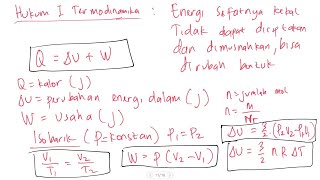 Hukum I Termodinamika : Energi sifatnya kekal
Tidak dapat diciptakan
dan dimusnahkan, bisa
dirubah bentuk
Q = ΔU + W
Q = kalor (J)
ΔU = perubahan energi dalam (J)
W = Usaha (J)
n = jumlah mol
n = m/Mr
Isobarik (P = konstan) P₁ = P₂
V₁/T₁ = V₂/T₂
W = P (V₂ - V₁)
ΔU = 3/2 (P₂V₂ - P₁V₁)
ΔU = 3/2 n R ΔT